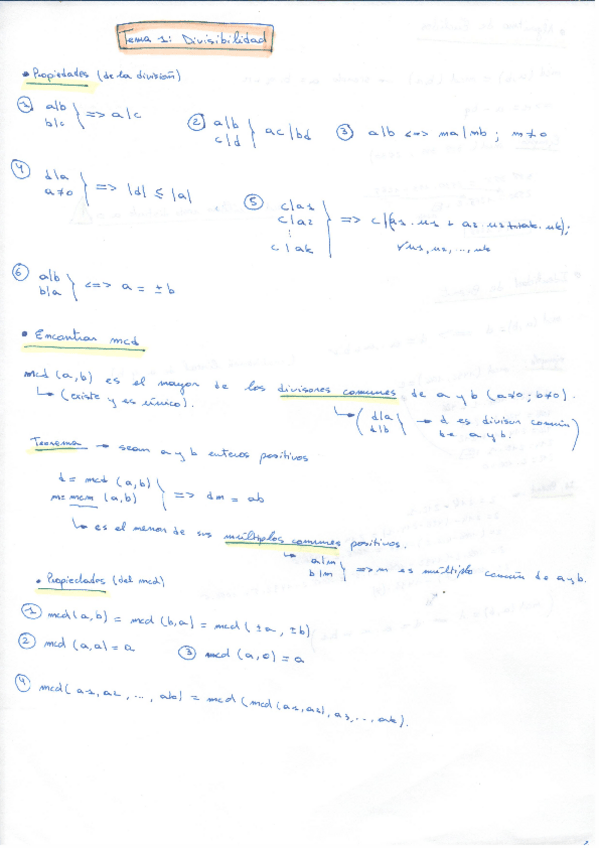 Tema 1: Divisibilidad
• Propiedades (de la división)
① a|b
b|c } => a|c
② a|b
c|d } ac|bd
③ a|b <=> ma|mb ; m≠0
④ d|a
a≠0 } => |d| ≤ |a|
⑤ c|a1
c|a2
⋮
c|ak } => c|(a1·u1 + a2·u2 + ak·uk);
∀u1, u2, ..., uk
⑥ a|b
b|a } <=> a = ±b
• Encontrar mcd
mcd (a,b) es el mayor de los divisores comunes de a y b (a≠0; b≠0).
↳ (existe y es único).
↳ ( d|a
d|b } → d es divisor común
de a y b. )
Teorema → sean a y b enteros positivos
d = mcd (a,b)
m = mcm (a,b) } => dm = ab
↳ es el menor de sus múltiplos comunes positivos.
↳ a|m
b|m } => m es múltiplo común de a y b.
• Propiedades (del mcd)
① mcd(a,b) = mcd (b,a) = mcd (±a, ±b)
② mcd (a,a) = a
③ mcd (a,0) = a
④ mcd(a1, a2, ..., ak) = mcd (mcd(a1,a2), a3, ..., ak).